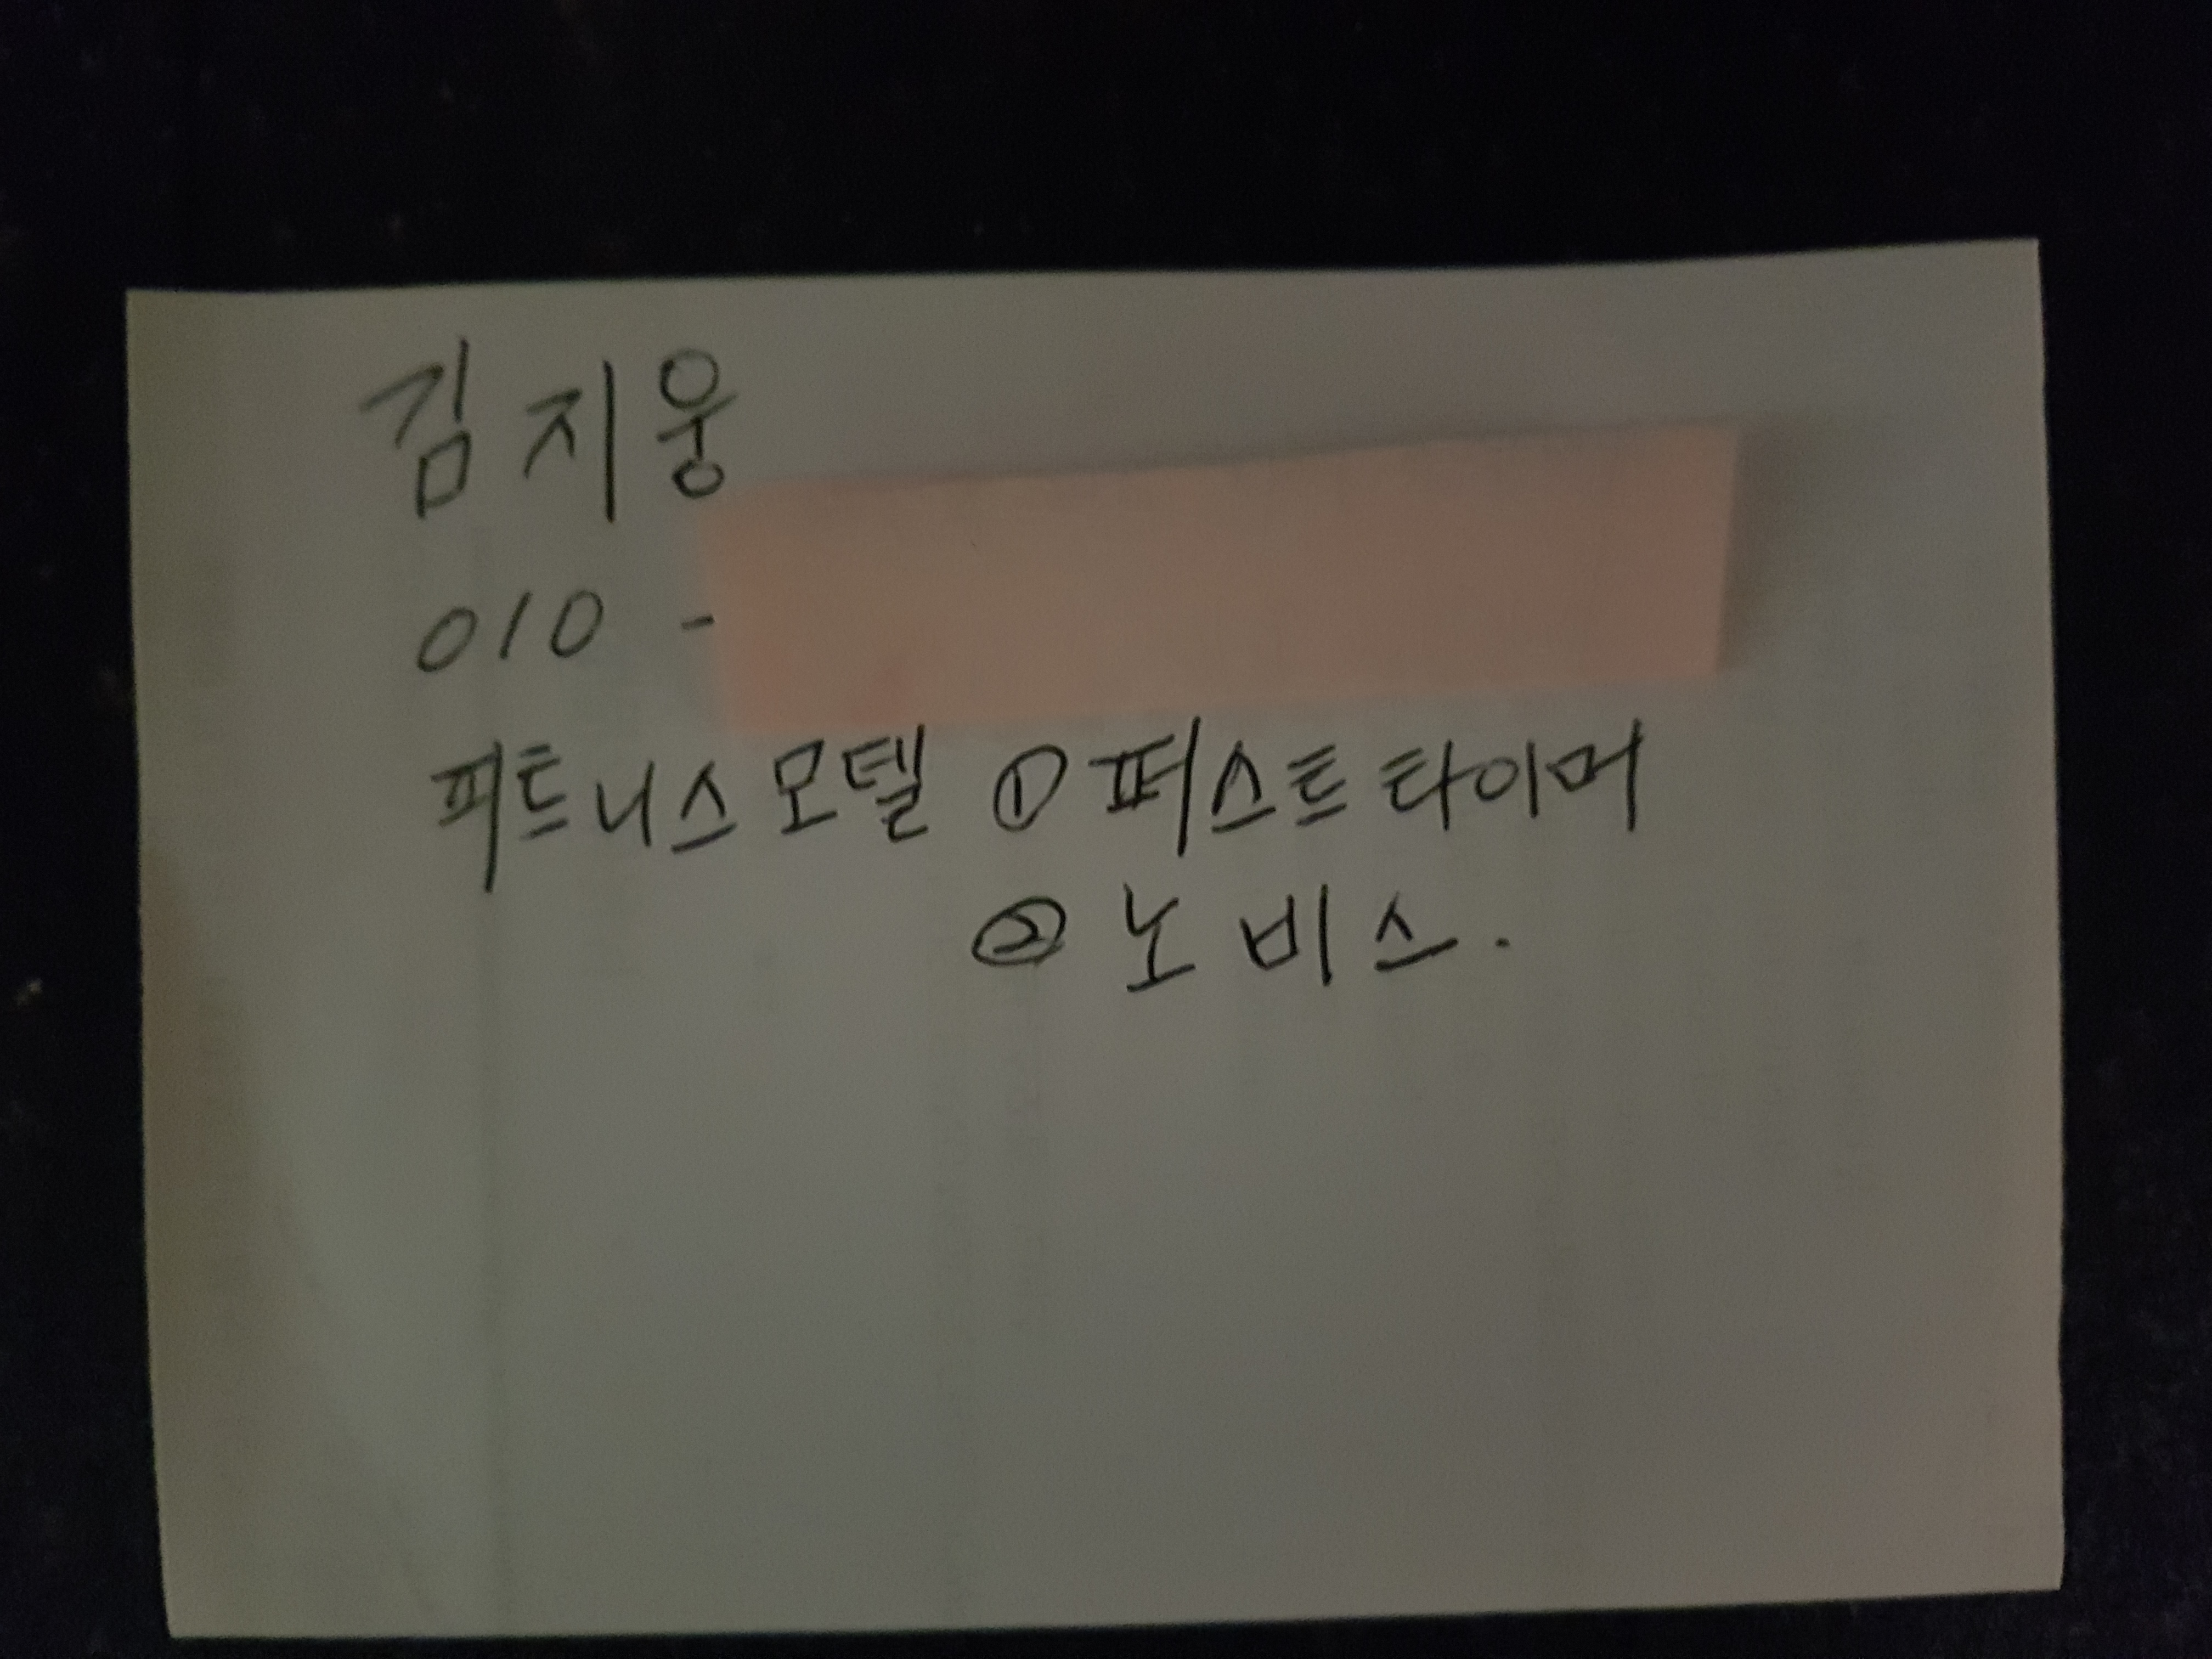 김지웅
010 -
피트니스모델 ① 퍼스트타이머
② 노비스.